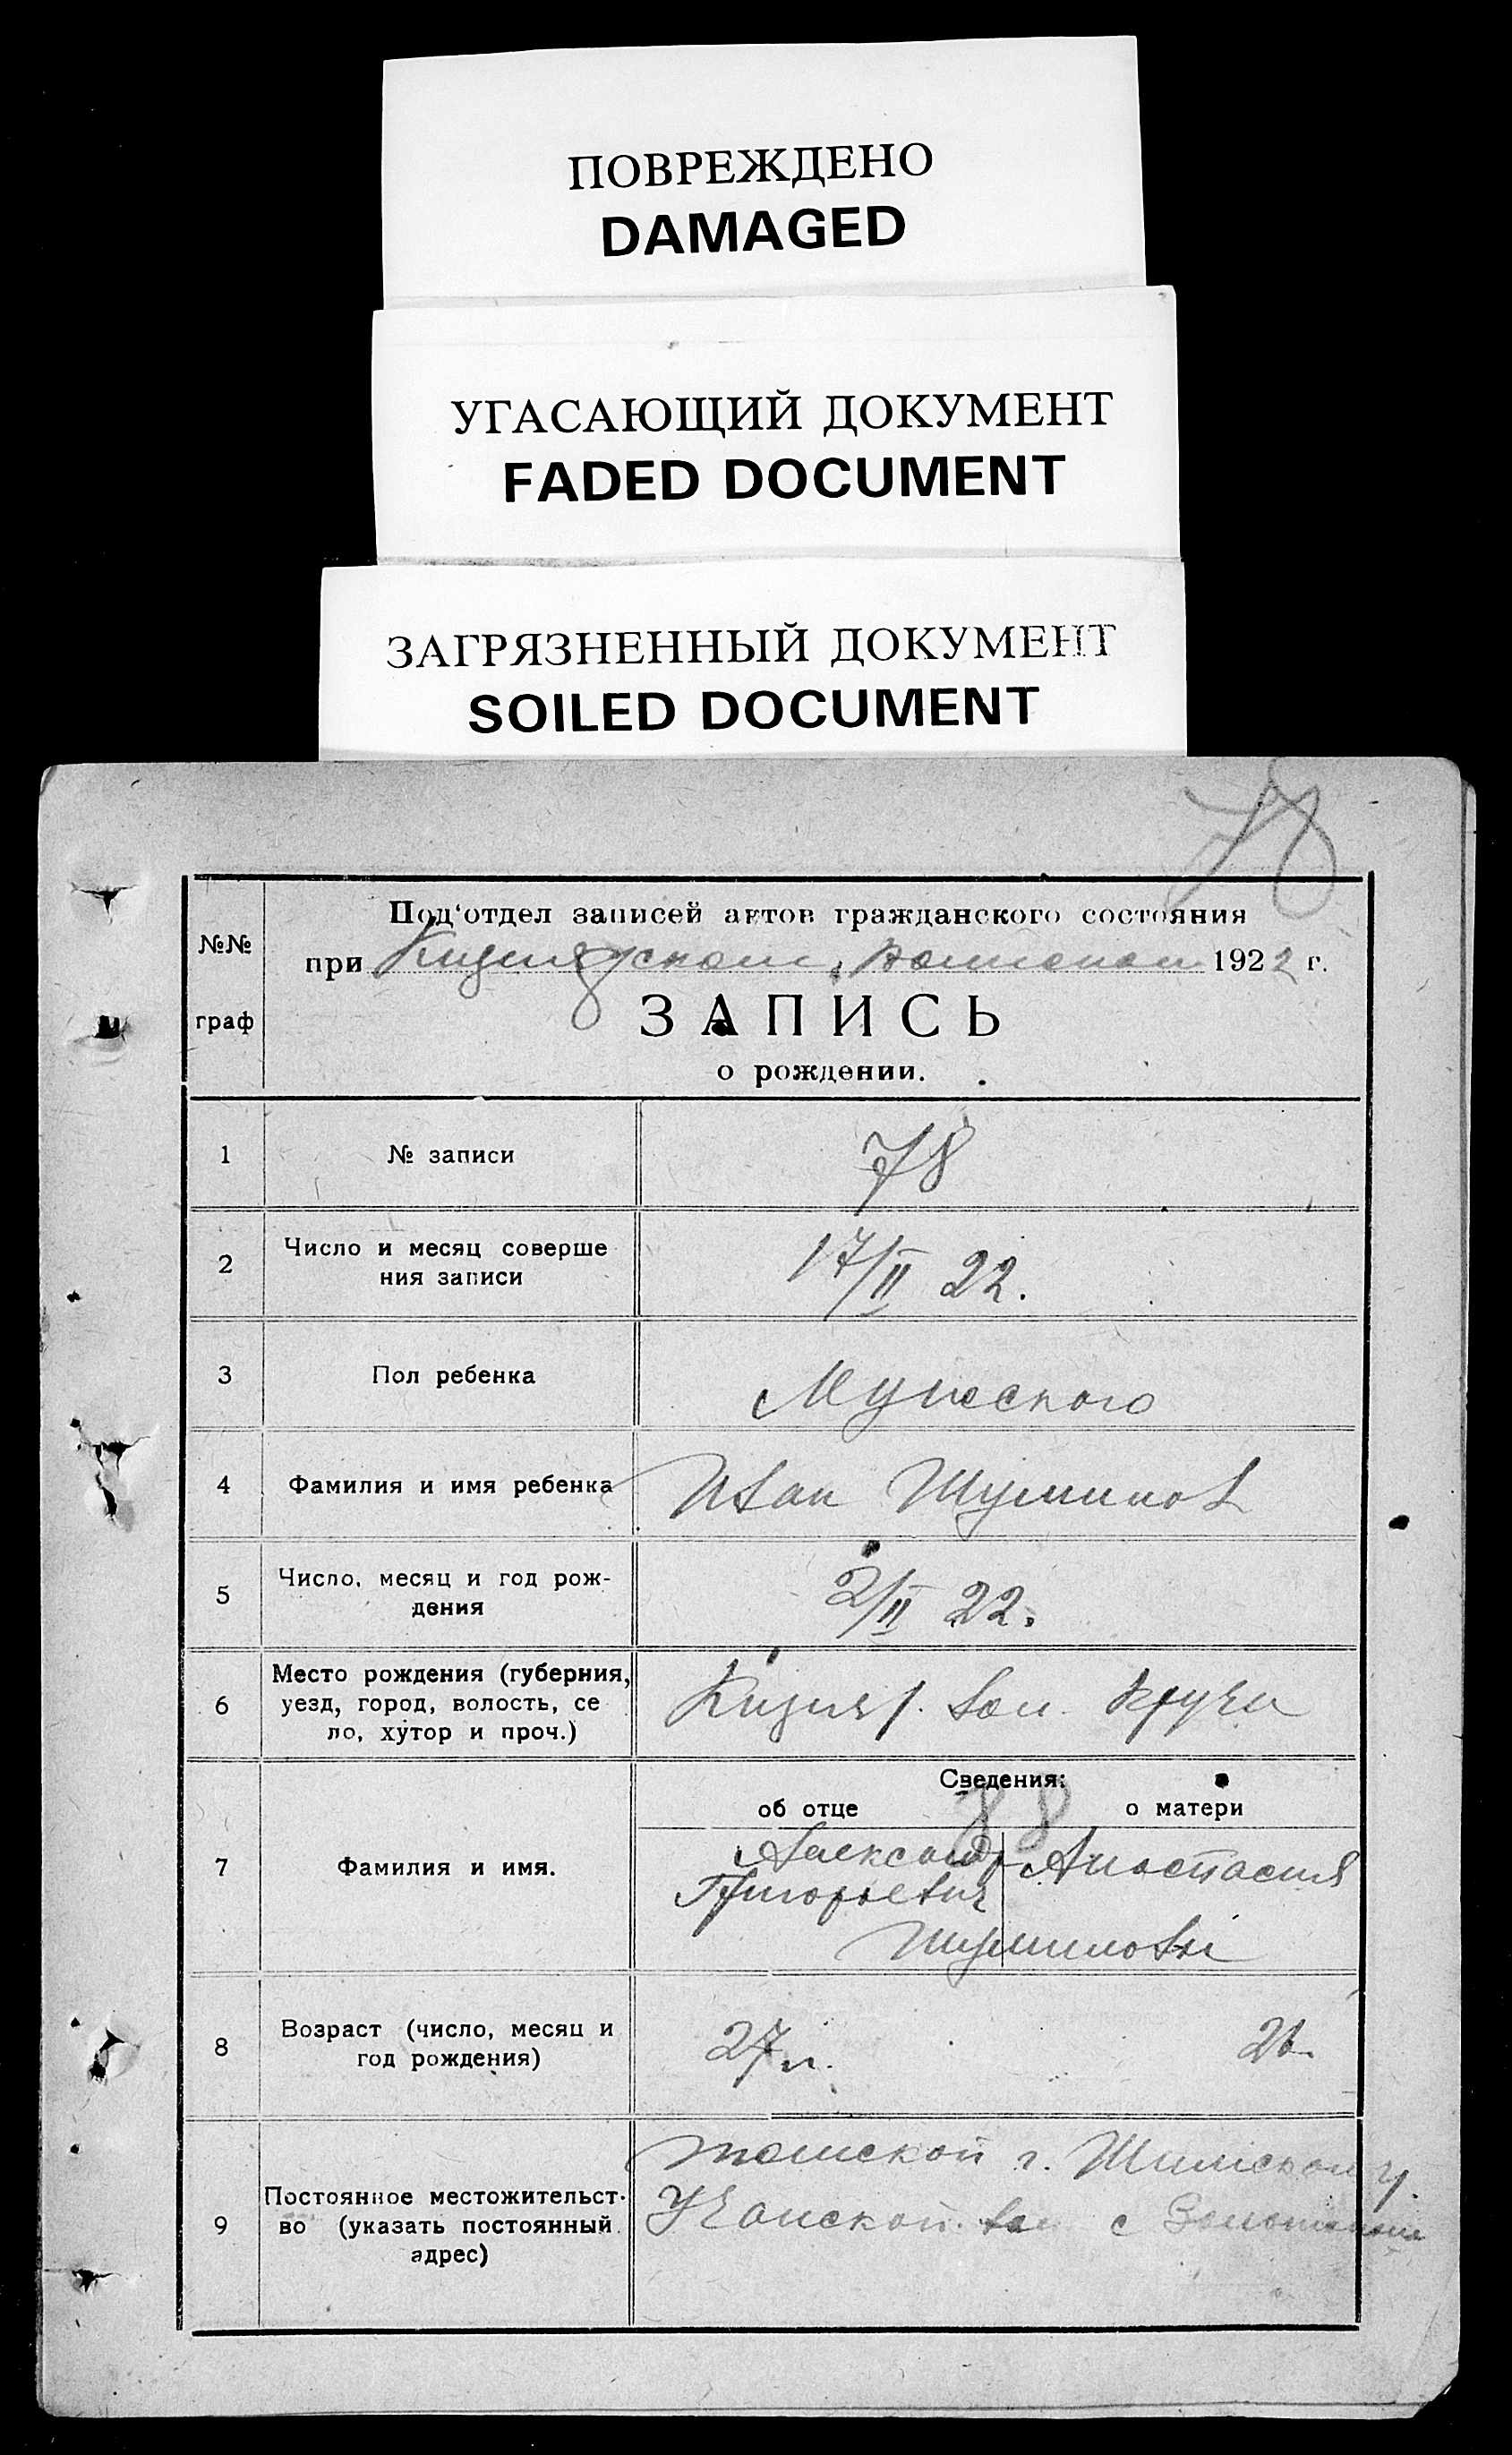 ПОВРЕЖДЕНО
DAMAGED
УГАСАЮЩИЙ ДОКУМЕНТ
FADED DOCUMENT
ЗАГРЯЗНЕННЫЙ ДОКУМЕНТ
SOILED DOCUMENT
78
№№ граф
Под'отдел записей актов гражданского состояния
при 1922 г.
ЗАПИСЬ
о рождении.
1 № записи 78
2 Число и месяц соверше
ния записи 17/II 22.
3 Пол ребенка Мужского
4 Фамилия и имя ребенка Иван Шумилов
5 Число, месяц и год рож-
дения 2/II 22.
6 Место рождения (губерния,
уезд, город, волость, се
ло, хутор и проч.) вол.
Сведения:
об отце о матери
88
7 Фамилия и имя. Александр Анастасия
Григорьевич
Шумиловы
8 Возраст (число, месяц и
год рождения) 27 л. 26
9 Постоянное местожительст-
во (указать постоянный
адрес)
Томской г.
вол с